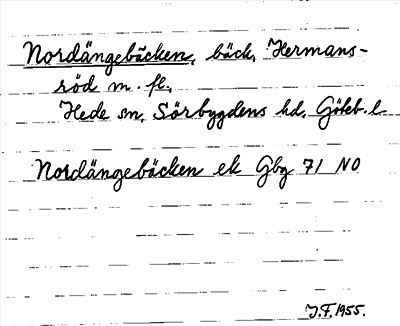 Nordängebäcken, bäck, Hermans-
röd m. fl.,
Hede sn, Sörbygdens hd, Göteb. l.
Nordängebäcken ek Gbg 71 NO
J.F. 1955.